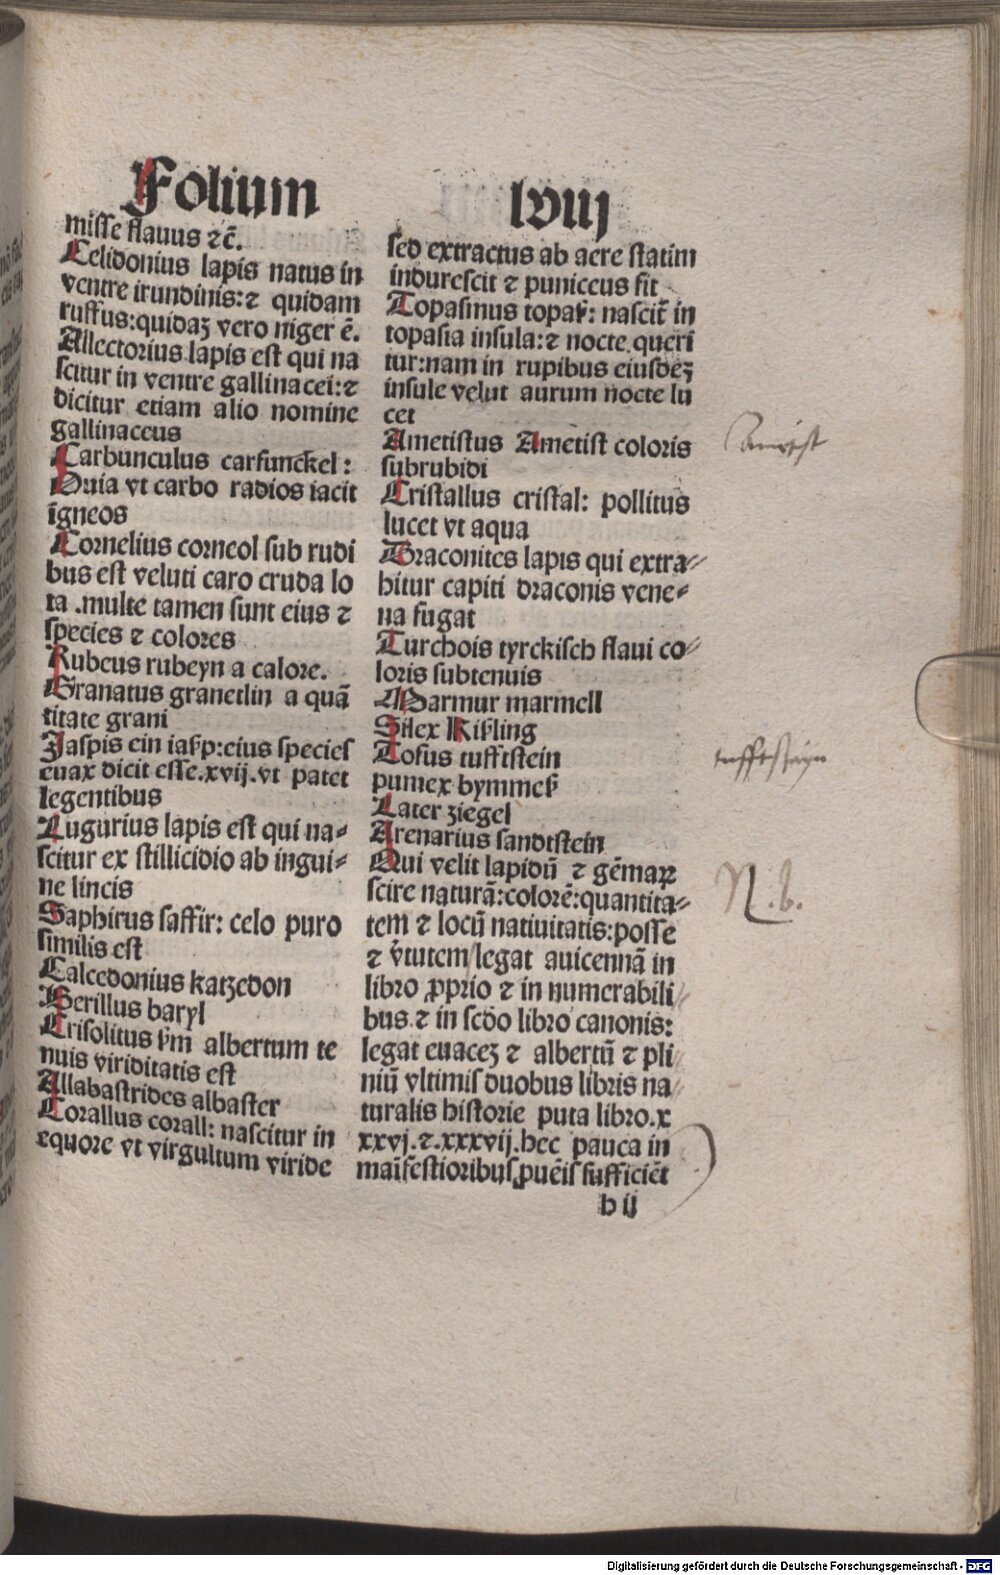 Folium lviij
misse flauus ⁊c̄.
Celidonius lapis natus in
ventre irundinis:⁊ quidam
ruffus:quidaꝫ vero niger ē.
Allectorius lapis est qui na
scitur in ventre gallinacei:⁊
dicitur etiam alio nomine
gallinaceus
Carbunculus carfunckel:
Quia vt carbo radios iacit
īgneos
Cornelius corneol sub rudi
bus est veluti caro cruda lo
ta .multe tamen sunt eius ⁊
species ⁊ colores
Rubeus rubeyn a calore.
Granatus granetlin a quā
titate grani
Jaspis ein iasp:eius species
euax dicit esse.xvij.vt patet
legentibus
Lugurius lapis est qui na⸗
scitur ex stillicidio ab ingui⸗
ne lincis
Saphirus saffir: celo puro
similis est
Calcedonius katzedon
Berillus baryl
Crisolitus ẜm albertum te
nuis viriditatis est
Allabastrides albaster
Corallus corall: nascitur in
equore vt virgultum viride
sed extractus ab aere statim
indurescit ⁊ puniceus fit
Topasinus topaẜ: nascit̄ in
topasia insula:⁊ nocte queri
tur:nam in rupibus eiusdeꝫ
insule velut aurum nocte lu
cet
Ametistus Ametist coloris
subrubidi
Cristallus cristal: pollitus
lucet vt aqua
Draconites lapis qui extra⸗
hitur capiti draconis vene⸗
na fugat
Turchois tyrckisch flaui co⸗
loris subtenuis
Marmur marmell
Silex Kißling
Tofus tufftstein
pumex bymmeß
Later ziegel
Arenarius sandtstein
Qui velit lapidū ⁊ gēmaꝝ
scire naturā:colorē:quantita⸗
tem ⁊ locū natiuitatis:posse
⁊ v̄tutem/legat auicennā in
libro ꝓprio ⁊ in numerabili/
bus.⁊ in scdo libro canonis:
legat euaceꝫ ⁊ albertū ⁊ pli/
niū vltimis duobus libris na/
turalis historie puta libro.x
xxvj.⁊.xxxvij.hec pauca in
maīfestioribus ꝓuēis sufficiēt
b ij
Amtist
tufftstayn
N.b.
Digitalisierung gefördert durch die Deutsche Forschungsgemeinschaft - DFG